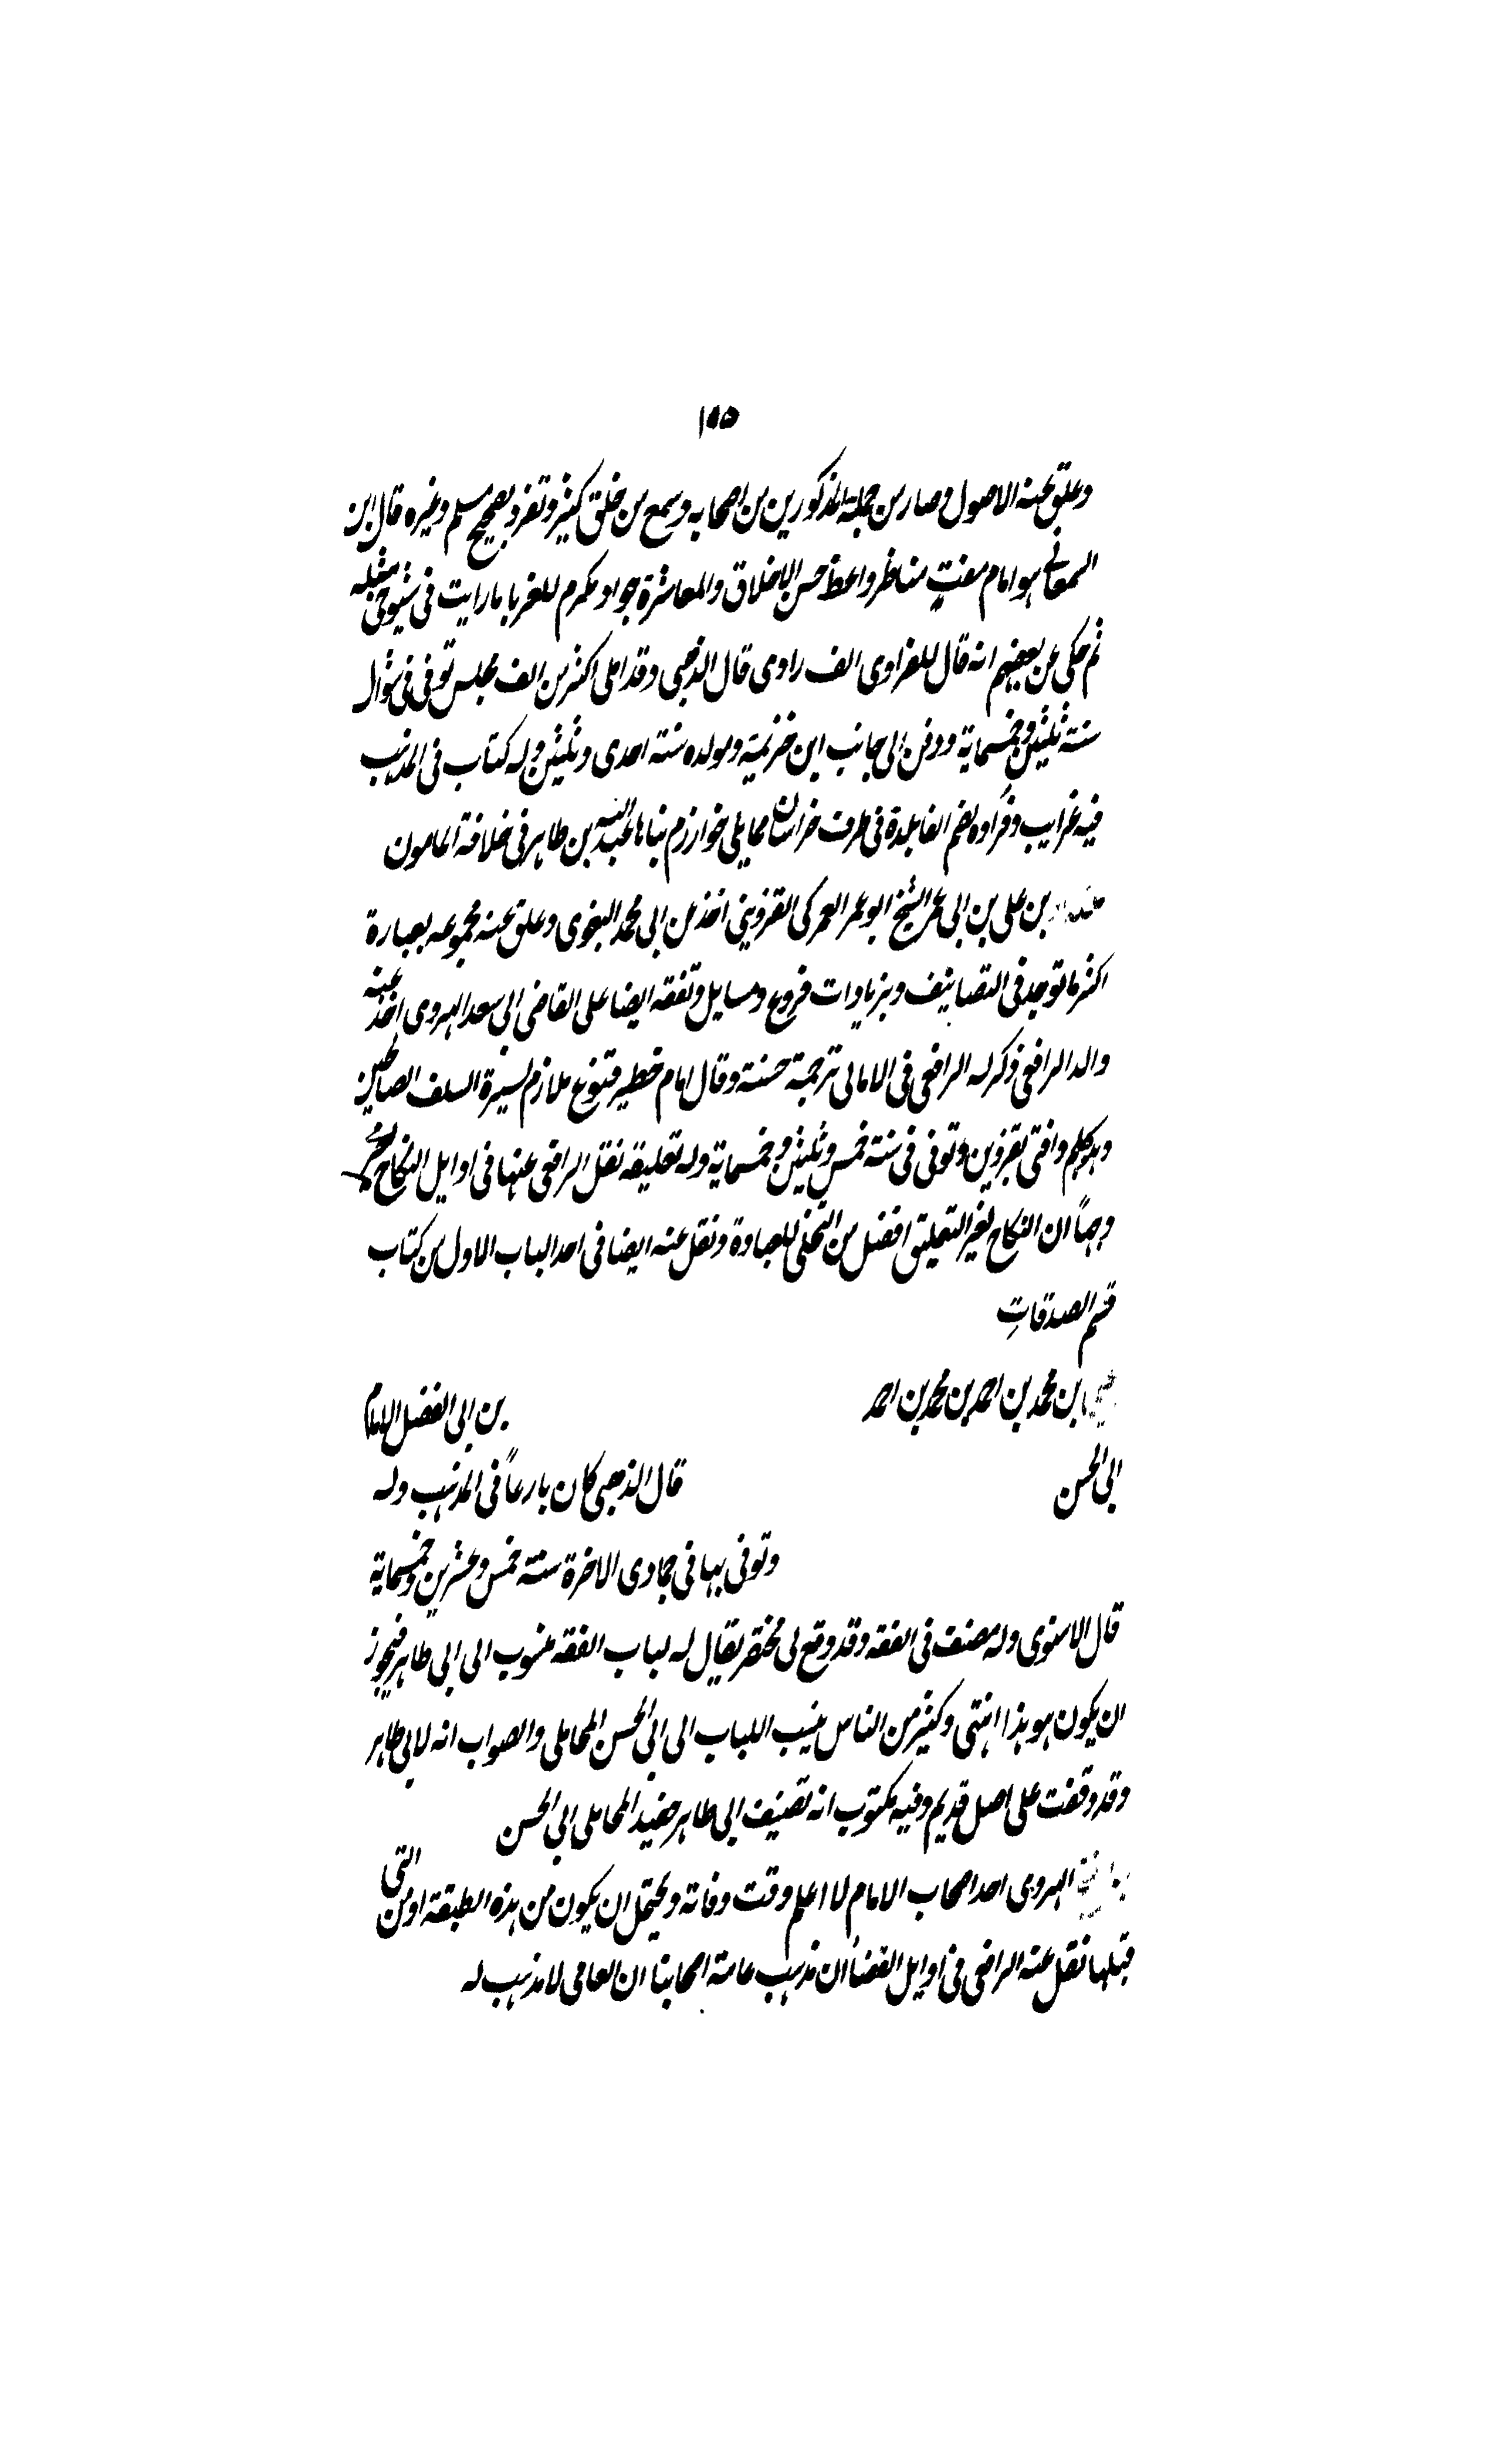 ١٥٥
وعلق عنه الاصول وصار من جملة المذكورين من اصحابه وسمع من خلق كثير وتفرد بصحيح مسلم وغيره قال ابن
السمعاني هو امام مفتٍ مناظر واعظ حسن الاخلاق والمعاشرة جواد مكرم للغربا ما رايت في شيوخي مثله
ثم حكى عن بعضهم انه قال للفراوى الف راوى قال الذهبى وقد املى اكثر من الف مجلس توفى في شوال
سنة ثلثين وخمسماية ودفن الى جانب ابن خزيمة ومولده سنة احدى وثلثين وله كتاب فى المذهب
فيه غرايب وفراوه بضم الفا بلدة فى طرف خراسان مما يلى خوارزم بناها عبد الله بن طاهر فى خلافة المامون
بن على بن ابى عمر الشيخ ابو عمر العمركى القزوينى اخذ عن ابى محمد البغوى وعلق عنه مجموعه بعبارة
اكثر ما توجد فى التصانيف وبزيادات فروع ومسايل وتفقه ايضا على القاضى ابى سعد الهروى اخذ عنه
والد الرافعى ذكر له الرافعى فى الامالى ترجمة حسنة وقال امام خطير متورع ملازم لسيرة السلف الصالحين
وهديهم وافتى بقزوين وتوفى فى سنة خمس وثلثين وخمسماية وله تعليقة نقل الرافعى عنها فى اوايل النكاح
وجهاً ان النكاح لغير التعليق افضل من التخلى للعبادة ونقل عنه ايضا فى احد الباب الاول من كتاب
قسم الصدقاتِ
بن محمد بن احمد بن محمد بن احمد بن ابى الفضل الامام
ابى الحسن قال الذهبى كان بارعاً فى المذهب وله
وتوفى بها فى جمادى الاخرة سنة خمس وعشرين وخمسماية
قال الاسنوى وله مصنف فى الفقه وقد وقع لى مختصر يقال له لباب الفقه منسوب الى ابى طاهر فيجوز
ان يكون هو هذا انتهى وكثير من الناس ينسب اللباب الى ابى الحسن المحاملى والصواب انه لابى طاهر
وقد وقفت على اصل قديم وفيه مكتوب انه تصنيف ابى طاهر حفيد المحاملى ابى الحسن
الهروى احد اصحاب الامام لا اعلم وقت وفاته ويحتمل ان يكون من هذه الطبقة او من التى
قبلها نقل عنه الرافعى فى اوايل القضا ان مذهب عامة اصحابنا ان العامى لا مذهب له